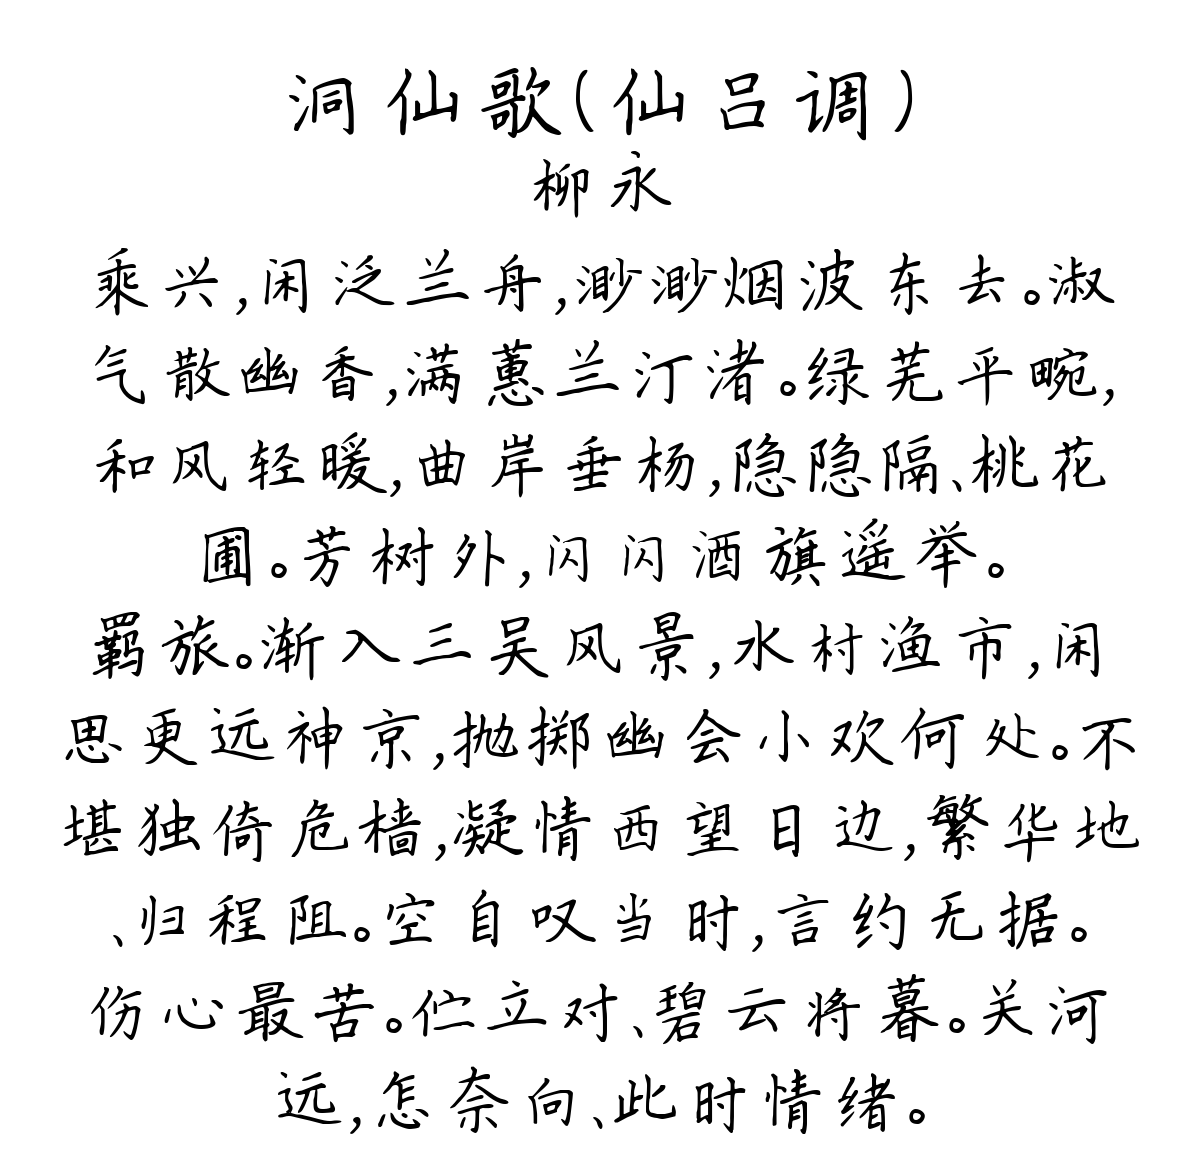 洞仙歌(仙吕调)
柳永
乘兴,闲泛兰舟,渺渺烟波东去。淑
气散幽香,满蕙兰汀渚。绿芜平畹,
和风轻暖,曲岸垂杨,隐隐隔、桃花
圃。芳树外,闪闪酒旗遥举。
羁旅。渐入三吴风景,水村渔市,闲
思更远神京,抛掷幽会小欢何处。不
堪独倚危樯,凝情西望日边,繁华地
、归程阻。空自叹当时,言约无据。
伤心最苦。伫立对、碧云将暮。关河
远,怎奈向、此时情绪。